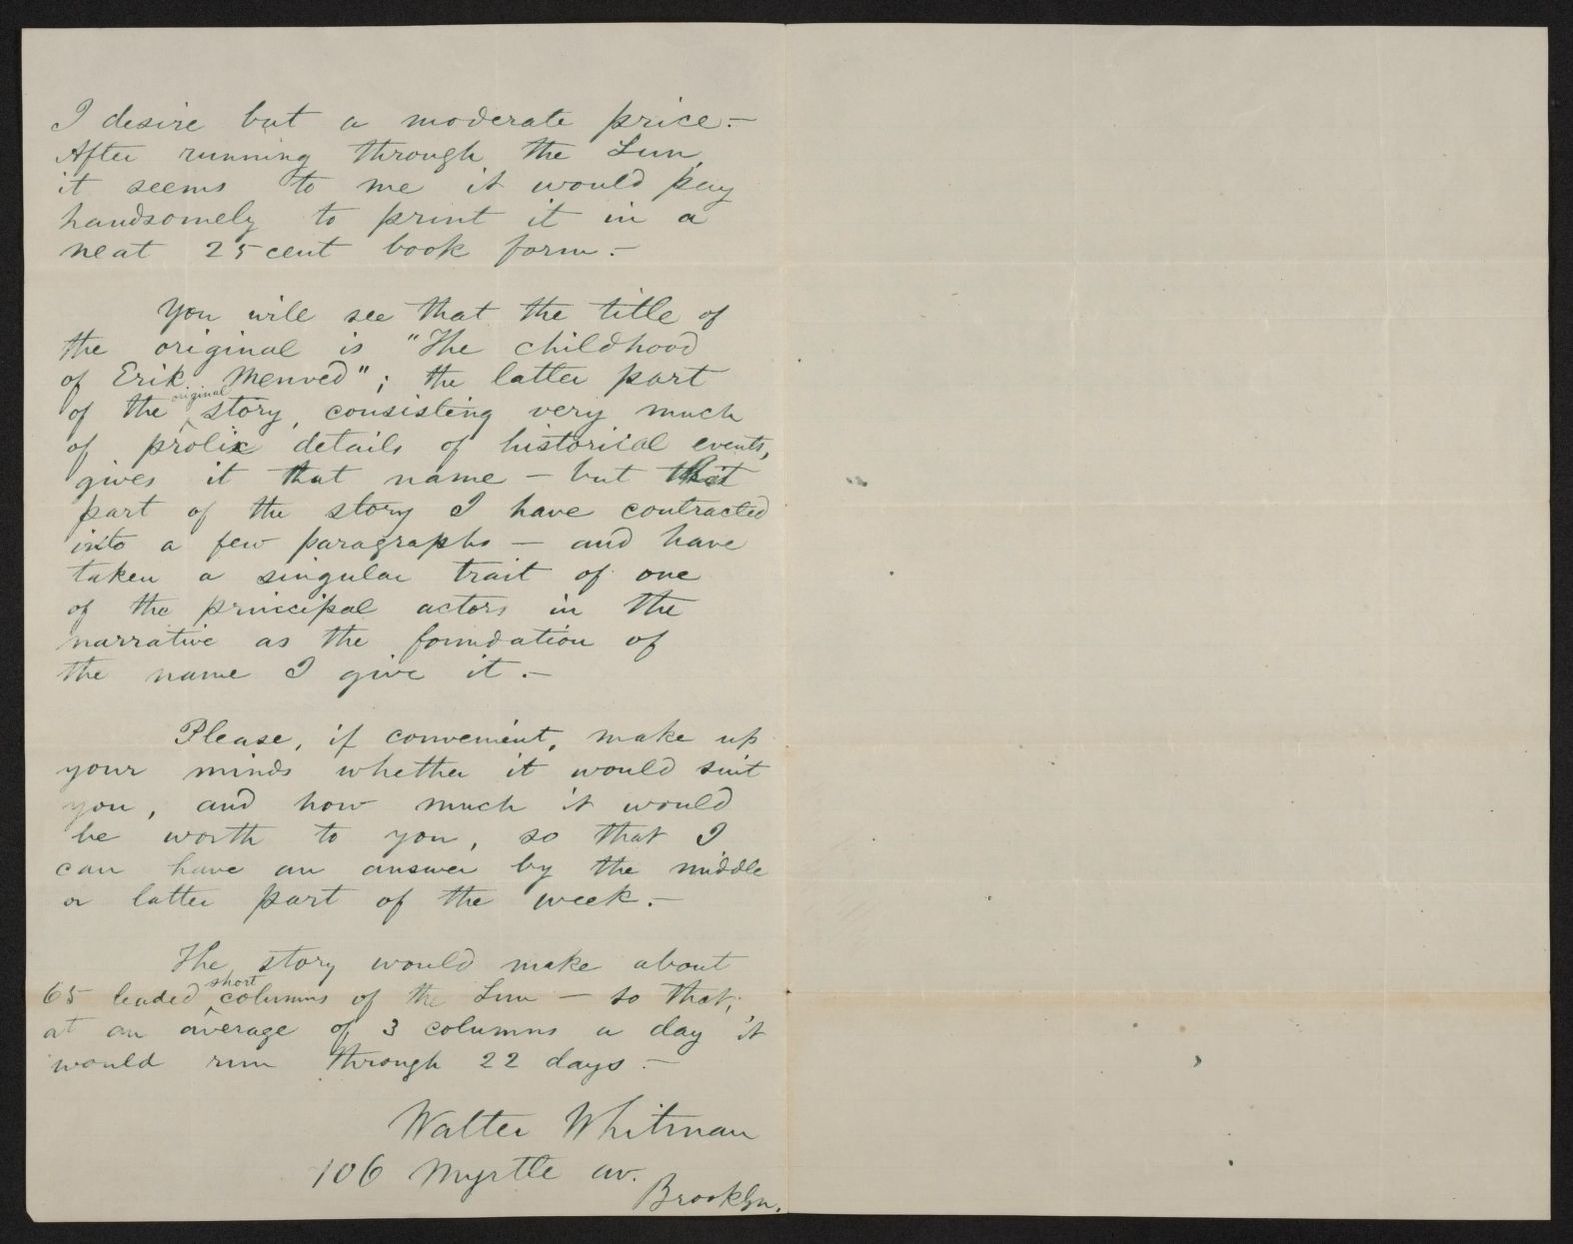 I desire but a moderate price.—
After running through the Sun,
it seems to me it would pay
handsomely to print it in a
neat 25 cent book form.—
You will see that the title of
the original is "The childhood
of Erik Menved"; the latter part
of the original story, consisting very much
of prolix details of historical events,
gives it that name — but that
part of the story I have contracted
into a few paragraphs — and have
taken a singular trait of one
of the principal actors in the
narrative as the foundation of
the name I give it.—
Please, if convenient, make up
your minds whether it would suit
you, and how much it would
be worth to you, so that I
can have an answer by the middle
or latter part of the week.—
The story would make about
65 leaded short columns of the Sun — so that,
at an average of 3 columns a day it
would run through 22 days.—
Walter Whitman
106 Myrtle av.
Brooklyn.